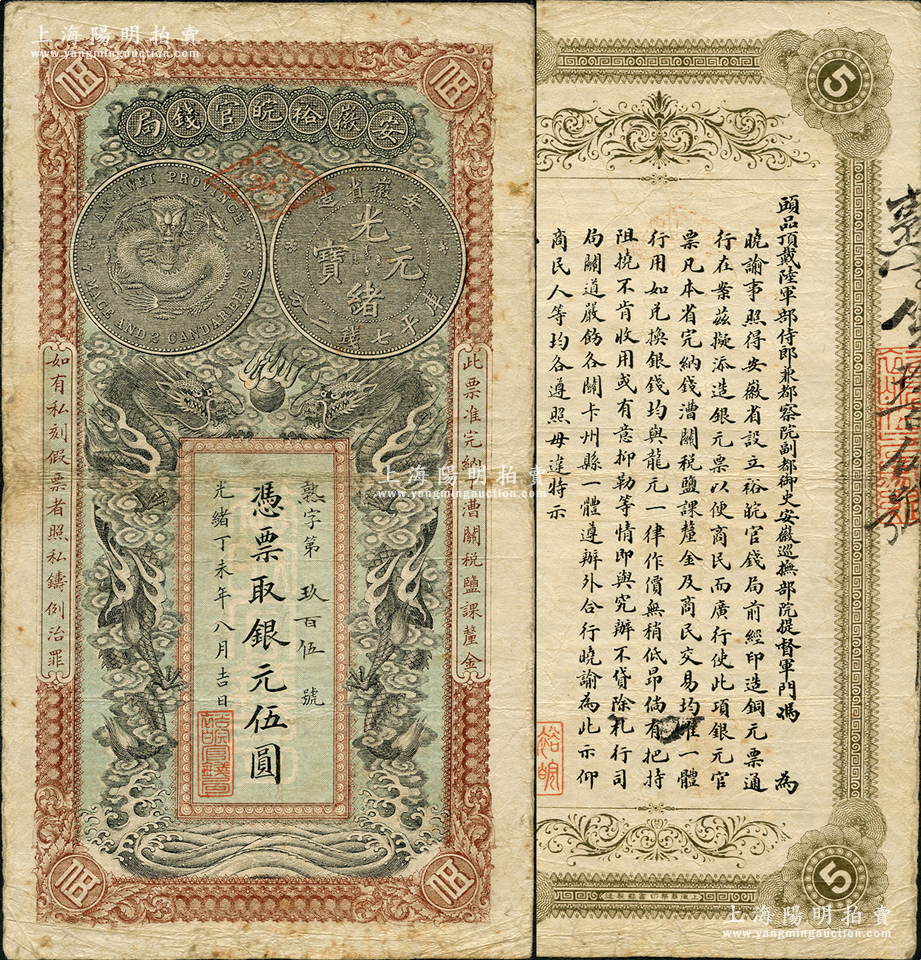 上海陽明拍賣
www.yangmingauction.com
伍
伍
局錢官皖裕徽安
AN-HWEI PROVINCE
7 MACE AND 2 CANDAREENS
安徽省造
光緒元寶
庫平七錢二分
此票准完納漕關税鹽課釐金
如有私刻假票者照私鑄例治罪
熟字第玖百伍號
憑票取銀元伍圓
光緒丁未年八月吉日
伍
伍
上海陽明拍賣
www.yangmingauction.com
5
頭品頂戴陸軍部侍郎兼都察院副都御史安徽巡撫部院提督軍門馮 為
曉諭事照得安徽省設立裕皖官錢局前經印造銅元票通
行在案茲擬添造銀元票以便商民而廣行使此項銀元官
票凡本省完納錢漕關税鹽課釐金及商民交易均准一體
行用如兑換銀錢均與龍元一律作價無稍低昂倘有把持
阻撓不肯收用或有意抑勒等情即與究辦不貸除札行司
局關道嚴飭各關卡州縣一體遵辦外合行曉諭為此示仰
商民人等均各遵照毋違特示
裕皖
5
上海陽明拍賣
www.yangmingauction.com